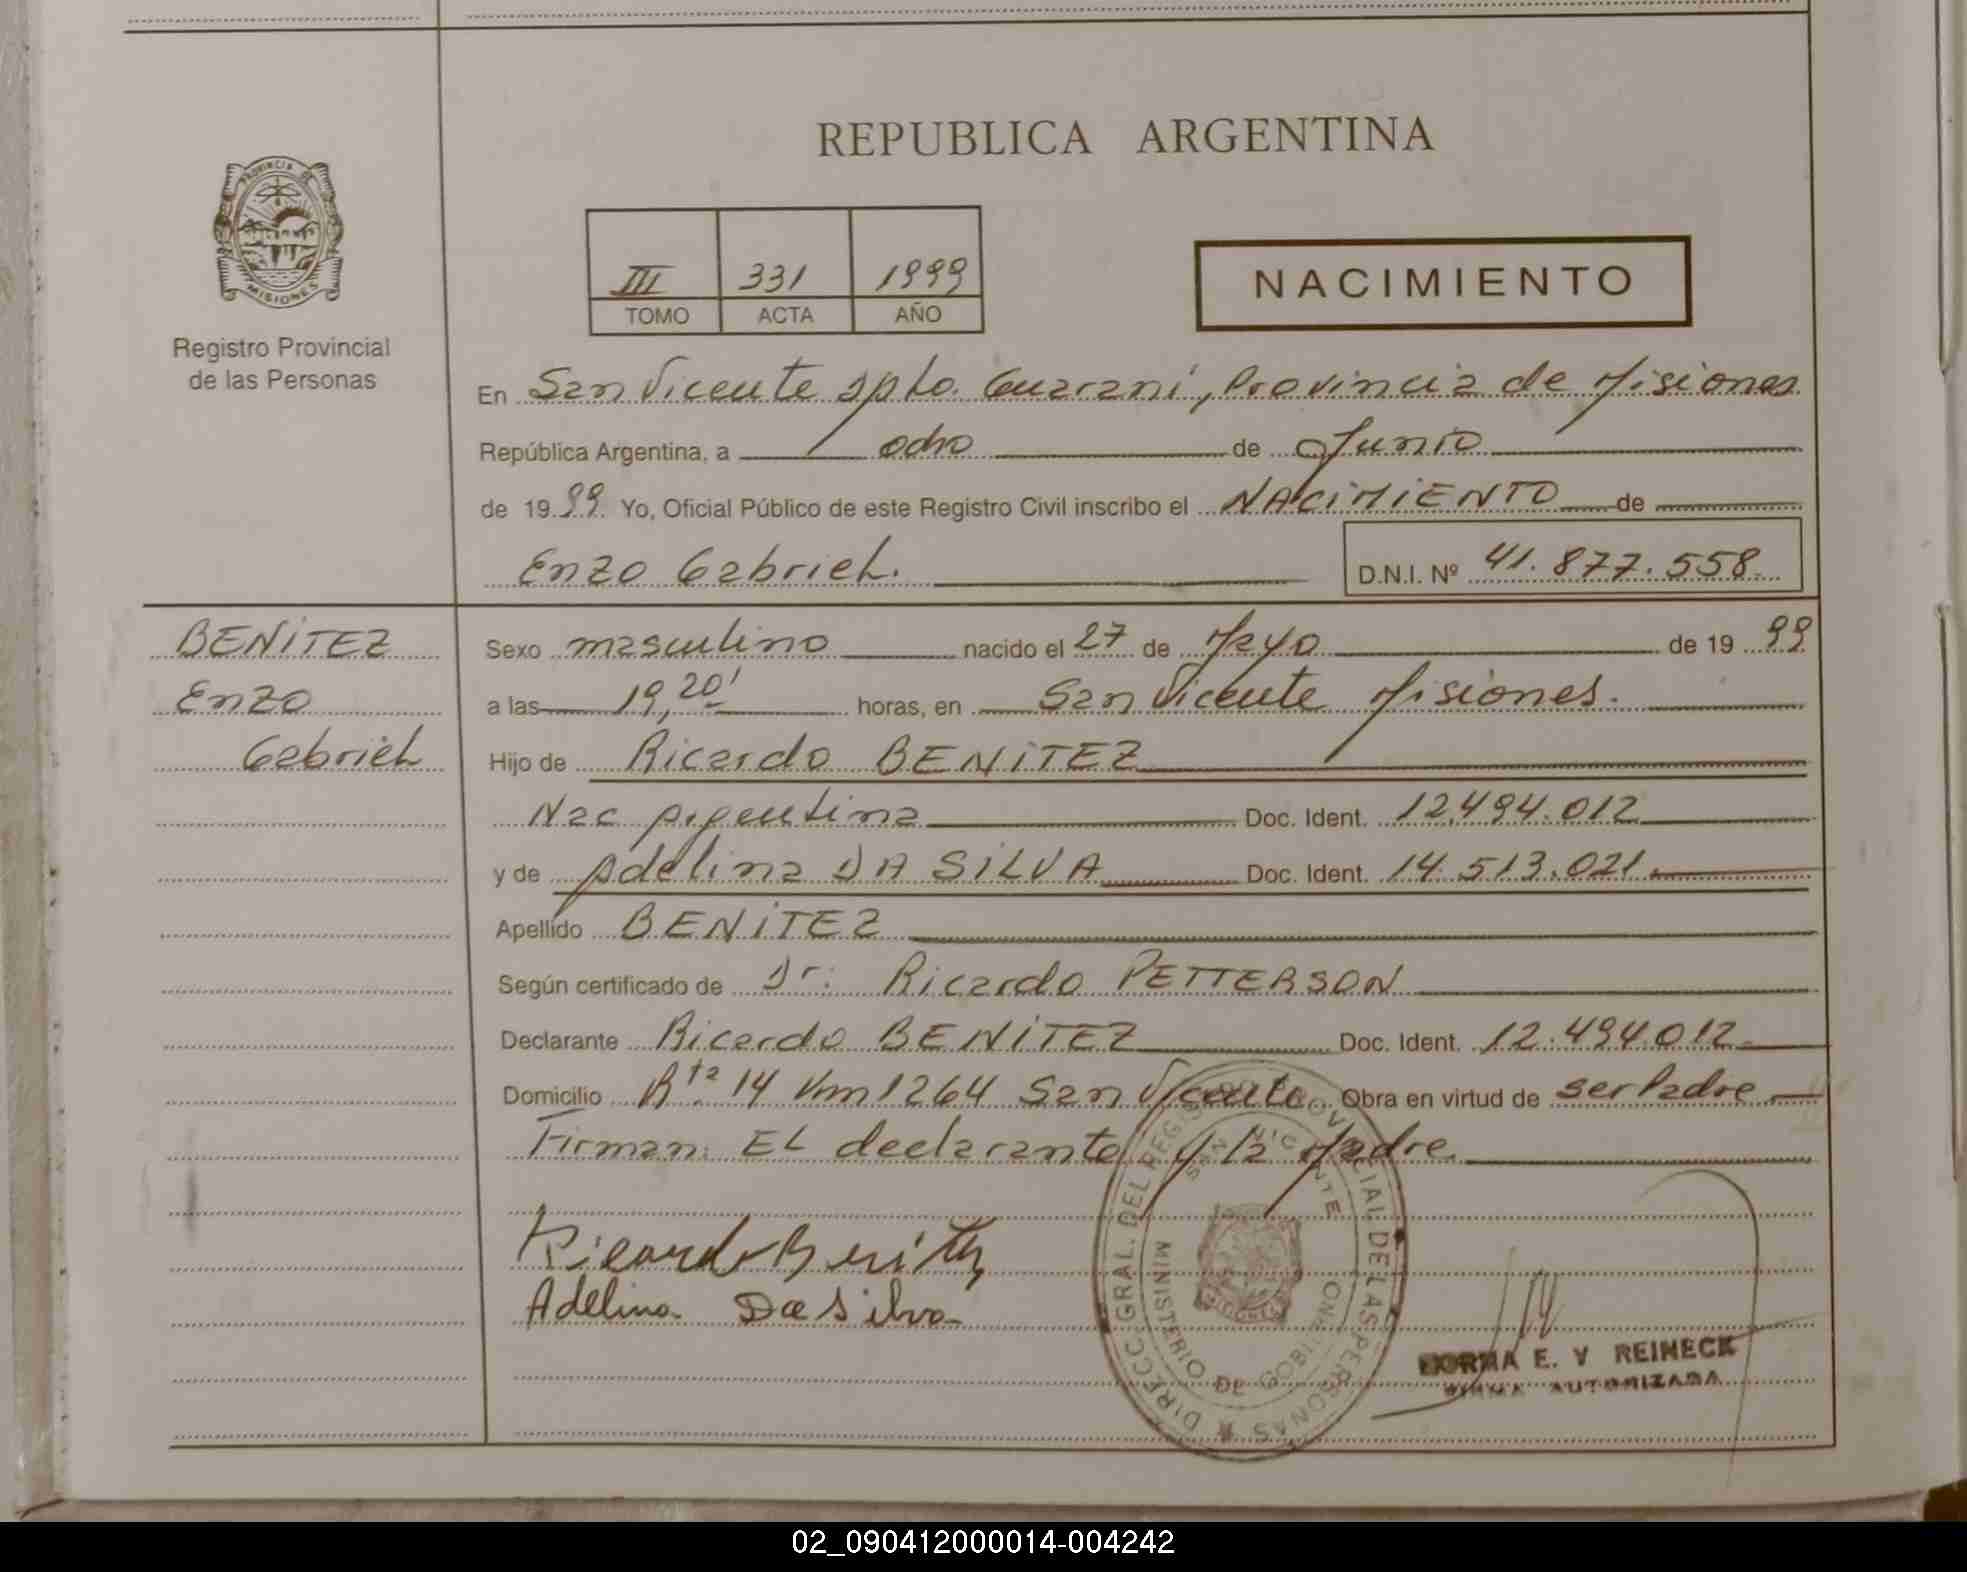 REPUBLICA ARGENTINA
PROVINCIA DE
MISIONES
Registro Provincial
de las Personas
III 331 1999
TOMO ACTA AÑO
NACIMIENTO
En San Vicente Dpto. Guaraní, Provincia de Misiones
República Argentina, a ocho de Junio
de 1999. Yo, Oficial Público de este Registro Civil inscribo el NACIMIENTO de
Enzo Gabriel. D.N.I. Nº 41.877.558
BENITEZ
Enzo
Gabriel
Sexo masculino nacido el 27 de Mayo de 1999
a las 19,20' horas, en San Vicente Misiones.
Hijo de Ricardo BENITEZ
Nac Argentina Doc. Ident. 12.494.012
y de Adelina DA SILVA Doc. Ident. 14.513.021
Apellido BENITEZ
Según certificado de Dr: Ricardo PETTERSON
Declarante Ricardo BENITEZ Doc. Ident. 12.494.012
Domicilio Rta 14 Km 1264 San Vicente Obra en virtud de ser Padre
Firman: EL declarante y la Madre
Ricardo Benitez
Adelina Da Silva
DIRECC. GRAL. DEL REGISTRO PROVINCIAL DE LAS PERSONAS
SAN VICENTE
MINISTERIO DE GOBIERNO
MISIONES
NORMA E. V REINECK
FIRMA AUTORIZADA
02_090412000014-004242